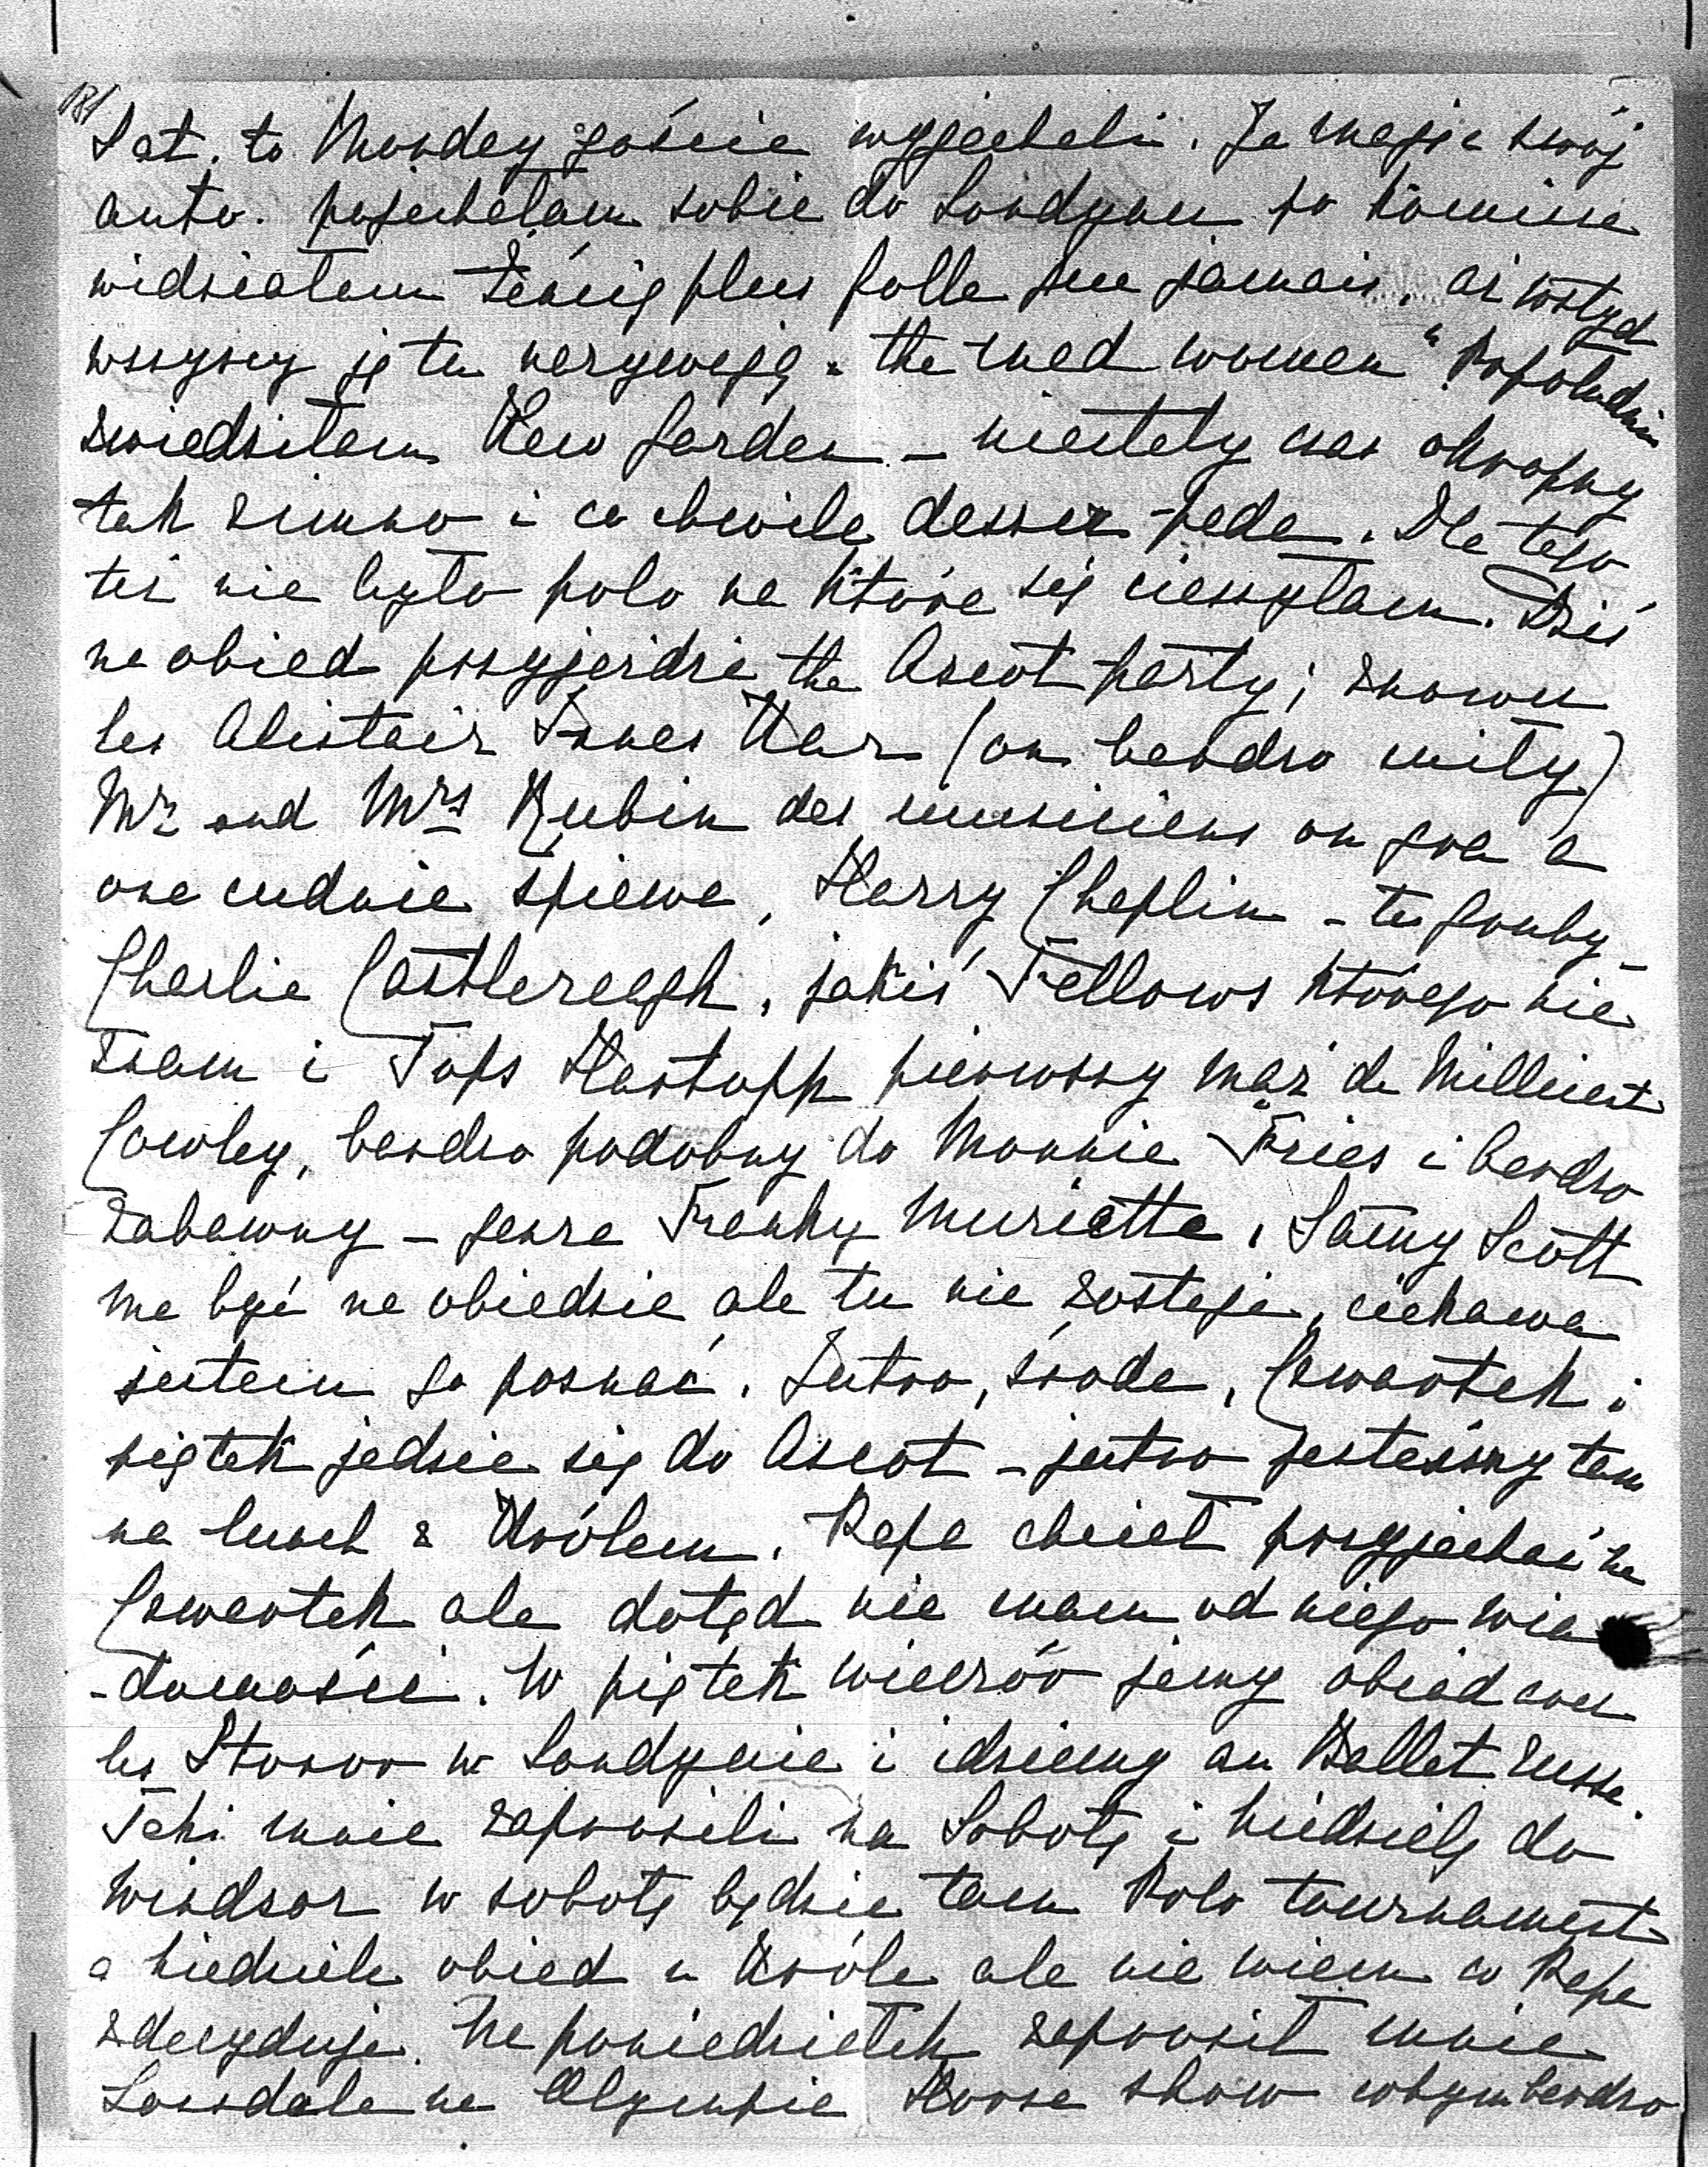 18/
Sat. to Monday goście wyjechali. Ja mając swój
auto. pojechałam sobie do Londynu po kominie
widziałam Żenię plus folle que jamais, aż wstyd
wszyscy ją tu nazywają "the mad woman" Popołudniu
zwiedziłam Kew Garden - niestety czas okropny
tak zimno i co chwile deszcz pada. Dla tego
też nie było polo na które się cieszyłam. Dziś
na obied przyjeżdża the Ascot party; znowu
les Alistair Innes Kar (on bardzo miły)
Mr and Mrs Rubin des musiciens on gra a
ona cudnie śpiewa, Harry Chaplin - ten gruby -
Charlie Castlereagh, jakiś Fellows którego nie
znam i Tops Hartopp pierwszy mąż de Millicent
Cowley, bardzo podobny do Monnie Fries i bardzo
zabawny - genre Franky Muriette, Samy Scott
ma być na obiedzie ale tu nie zostaje, ciekawa
jestem go poznać. Jutro, środa, Czwartek i
piątek jedzie się do Ascot - jutro jesteśmy tam
na lunch z Królem. Pepe chciał przyjechać na
Czwartek ale dotąd nie mam od niego wia
-domości. W piątek wieczór jemy obiad chez
les Stonor w Londynie i idziemy au Ballet russe.
Teki mnie zaprosili na Sobotę i niedzielę do
Windsor w sobotę będzie tam Polo tournament
a niedziele obied u Króla ale nie wiem co Pepe
zdecyduje. Na poniedziałek zaprosił mnie
Lonsdale na Olympie Horse show cobym bardzo